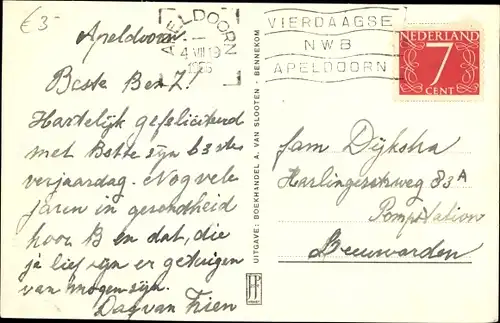 €3-
Apeldoorn.
Beste Ben Z!
Hartelijk gefeliciteerd
met Bette zijn 63ste
verjaardag. Nog vele
jaren in gezondheid
hoor B en dat, die
je lief zijn er getuigen
van mogen zijn.
Dag van Trien
APELDOORN
4 VII 19
1956
VIERDAAGSE
NWB
APELDOORN
NEDERLAND
7
CENT
UITGAVE: BOEKHANDEL A. VAN SLOOTEN - BENNEKOM
fam Dijkstra
Harlingerstrweg 83A
Pompstation
Leeuwarden